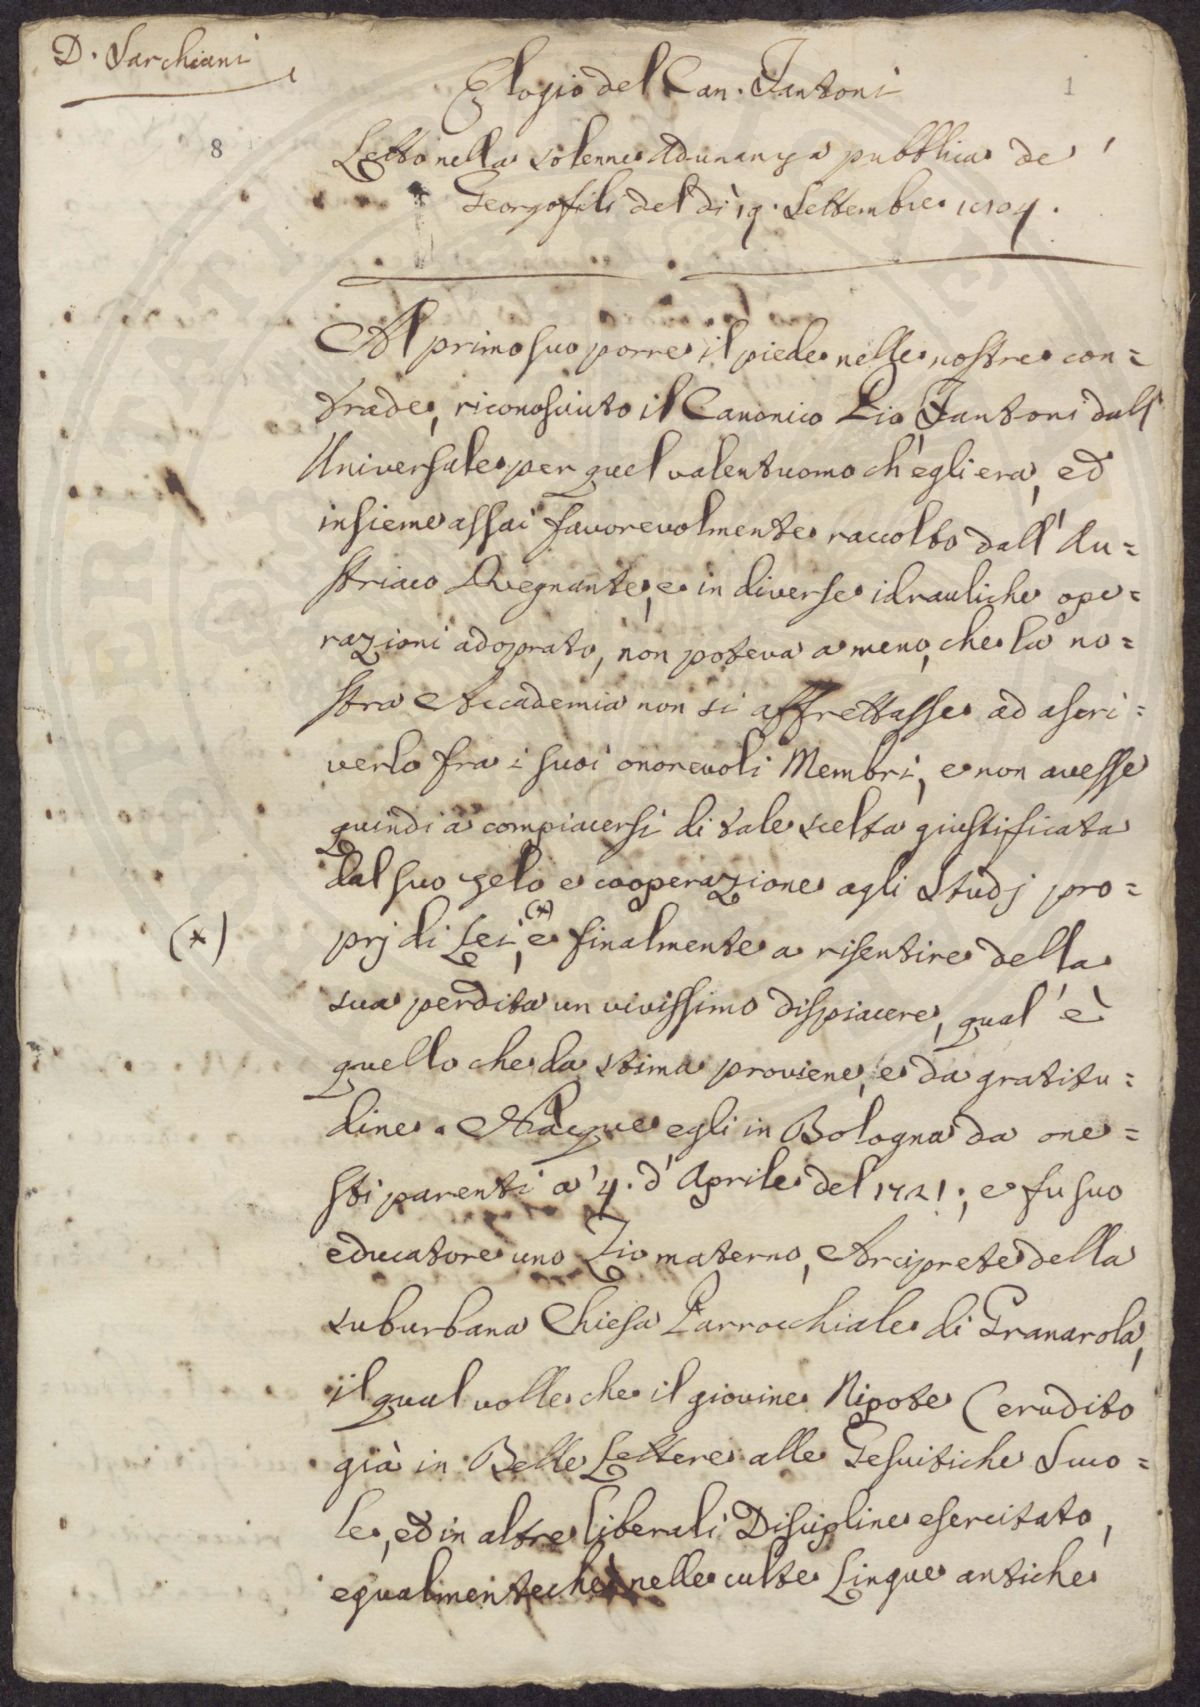 D. Sarchiani
1
8
Elogio del Can. Fantoni
Letto nella solenne Adunanza pubblica de'
Georgofili del dì 19. Settembre 1804.
Al primo suo porre il piede nelle nostre con=
trade, riconosciuto il Canonico Pio Fantoni dall'
Universale per quel valentuomo ch'egli era, ed
insieme assai favorevolmente raccolto dall'Au=
striaco Regnante, e in diverse idrauliche ope=
razioni adoprato, non poteva a meno, che la no=
stra Accademia non si affrettasse ad ascri=
verlo fra i suoi onorevoli Membri, e non avesse
quindi a compiacersi di tale scelta giustificata
dal suo zelo e cooperazione agli Studj pro=
(*)
prj di Lei, (*) e finalmente a risentire della
sua perdita un vivissimo dispiacere, qual'è
quello che da stima proviene, e da gratitu=
dine. Nacque egli in Bologna da one=
sti parenti a' 4. d'Aprile del 1721.; e fu suo
educatore uno Zio materno, Arciprete della
suburbana Chiesa Parrocchiale di Granarola,
il qual volle che il giovine Nipote (erudito
già in Belle Lettere alle Gesuitiche Scuo=
le, ed in altre liberali Discipline esercitato,
egualmenteché nelle culte Lingue antiche